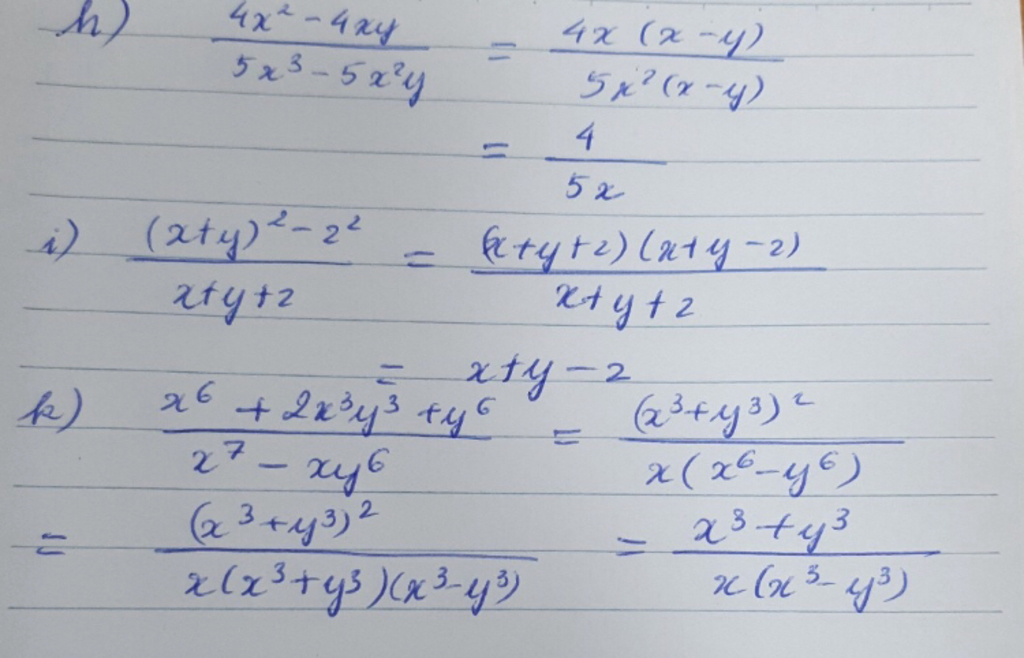 h) (4x² - 4xy)/(5x³ - 5x²y) = (4x (x - y))/(5x² (x - y))
= 4/(5x)
i) ((x+y)² - z²)/(x+y+z) = ((x+y+z) (x+y-z))/(x+y+z)
= x+y-z
k) (x⁶ + 2x³y³ + y⁶)/(x⁷ - xy⁶) = (x³+y³)²/(x(x⁶-y⁶))
= (x³+y³)²/(x(x³+y³)(x³-y³)) = (x³+y³)/(x(x³-y³))